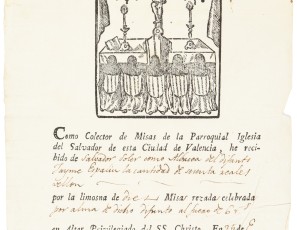 Como Colector de Misas de la Parroquial Iglesia
del Salvador de esta Ciudad de Valencia, he reci-
bido de Salvador Soler como Albacea del difunto
Jayme la cantidad de reales
vellon
por la limosna de diez Misas rezadas celebradas
por alma de dicho difunto
en Altar Privilegiado del SS. Christo.